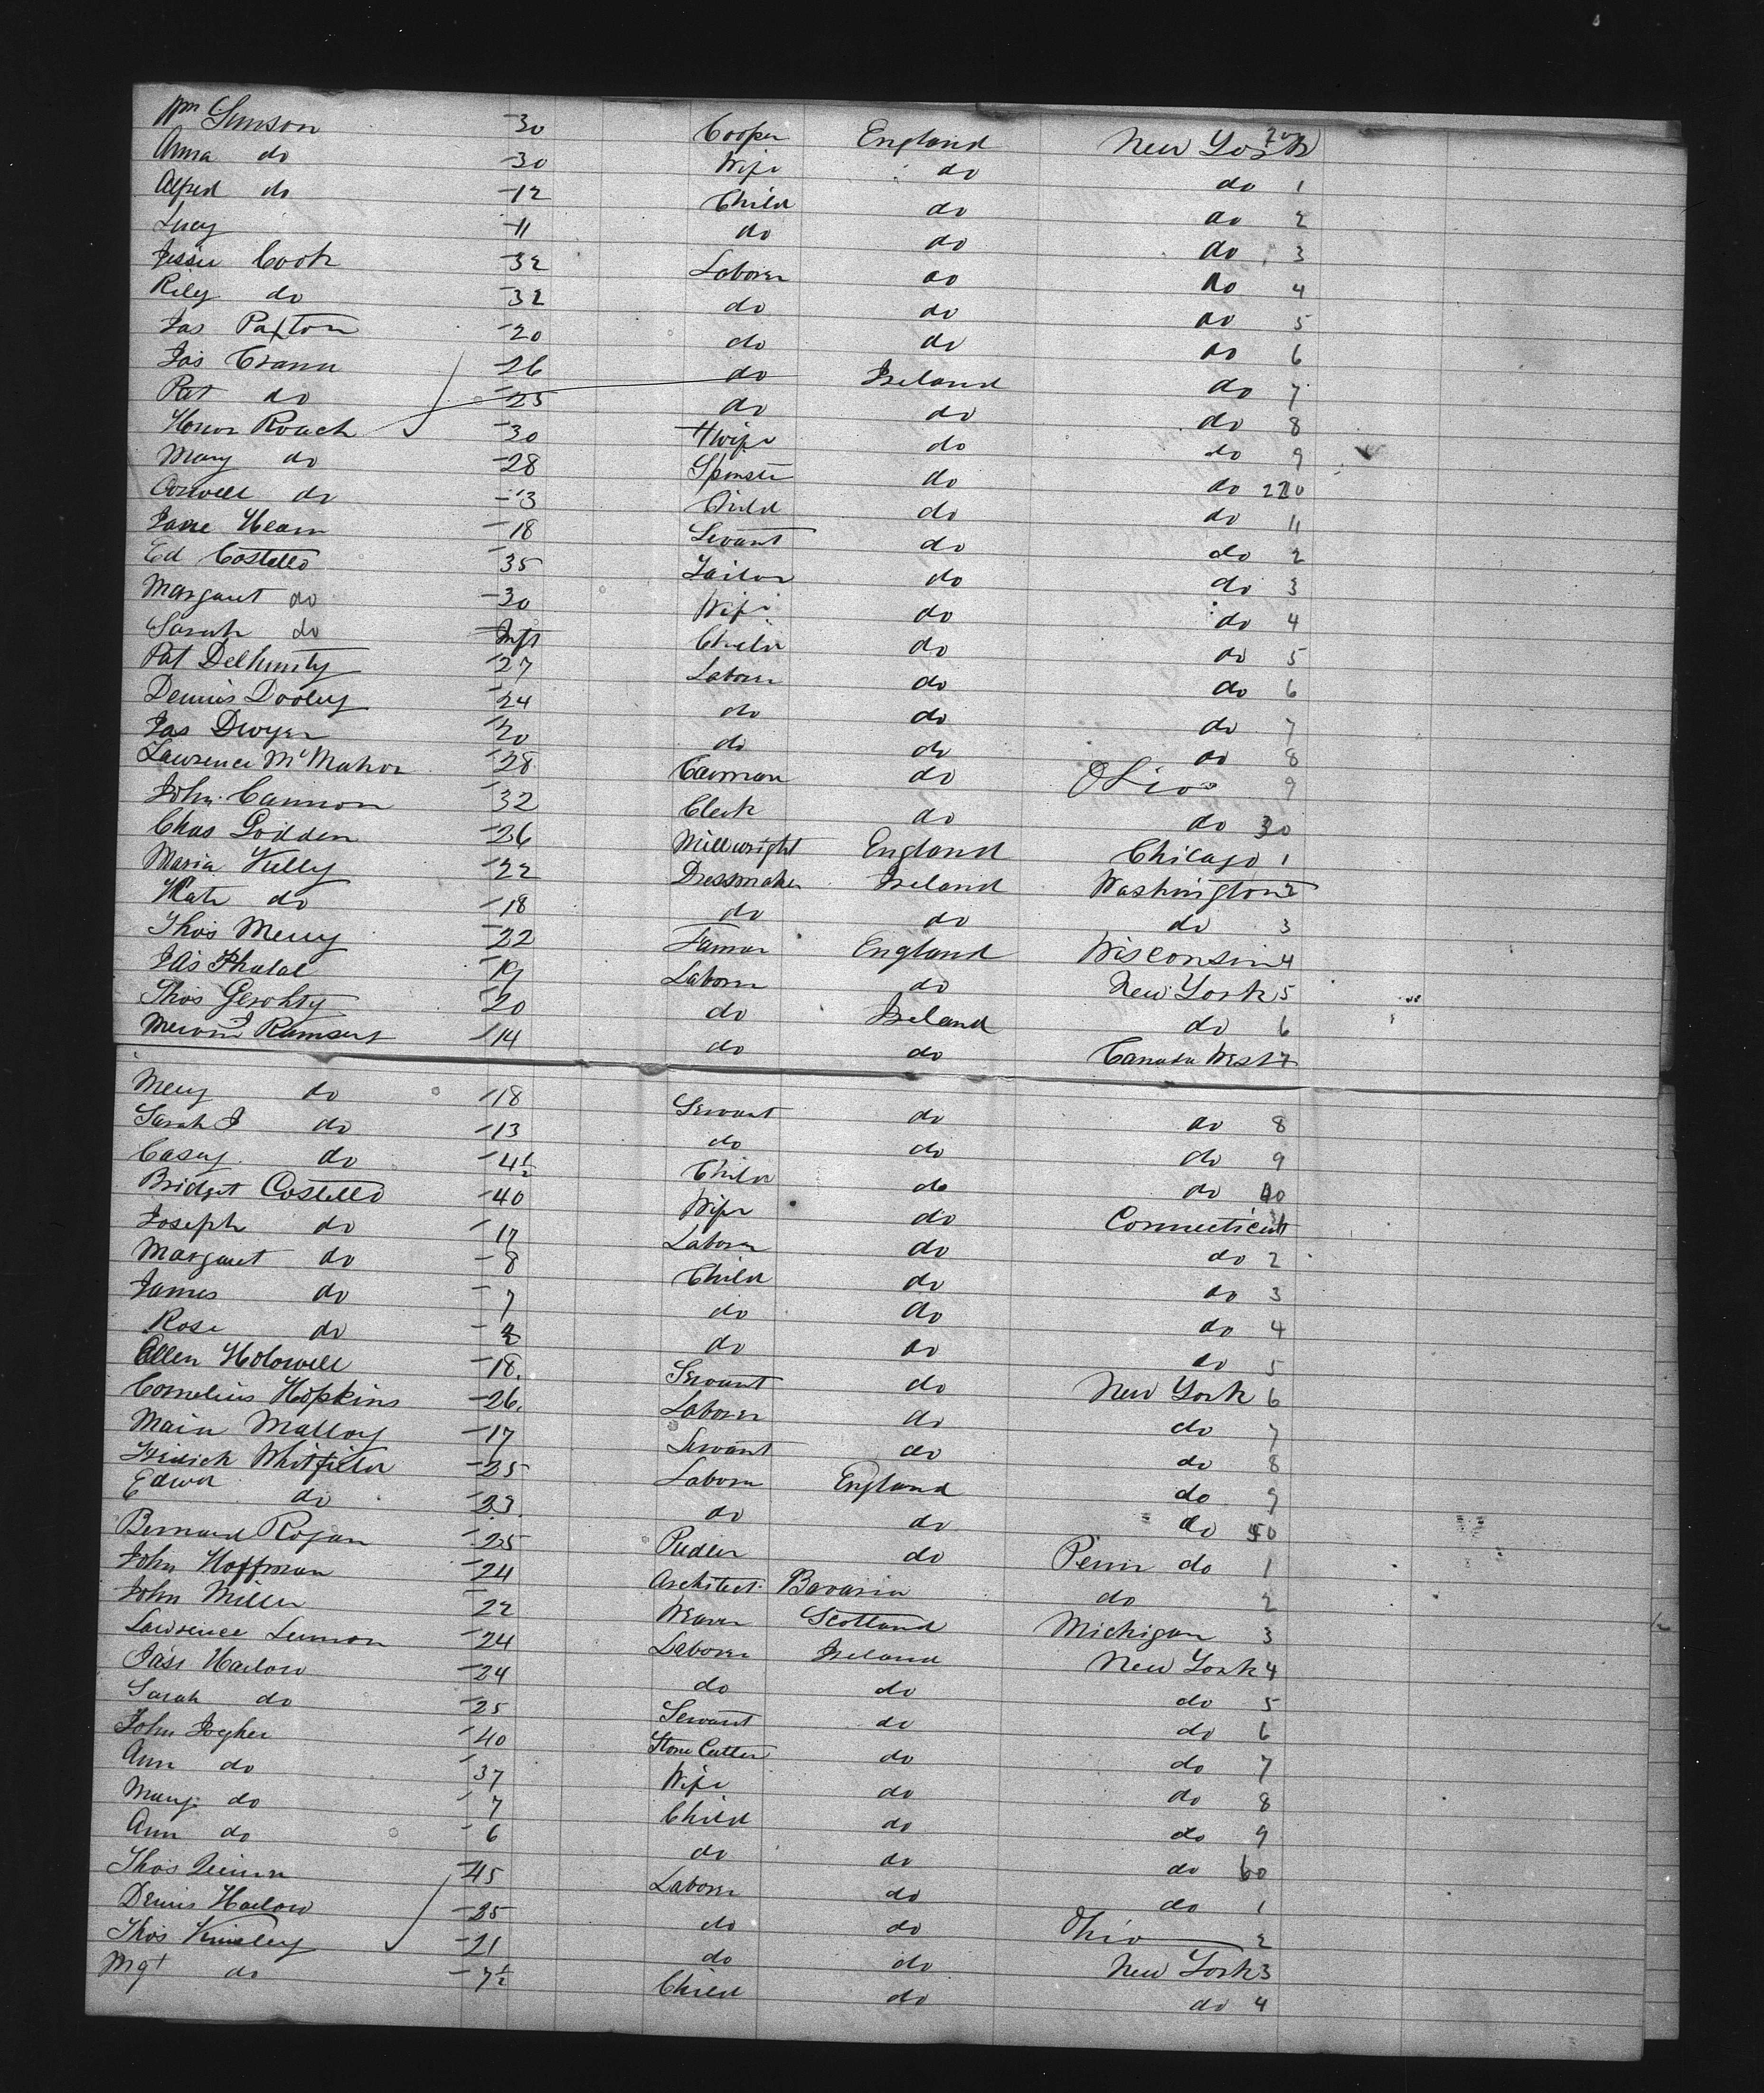 Wm Gunson 30 Cooper England New York 200
Anna do 30 Wife do do 1
Alfred do 12 Child do do 2
Lucy 11 do do do 3
Jessie Cook 32 Laborer do do 4
Riley do 32 do do do 5
Jas Paxton 20 do do do 6
Jas Crann 26 do Ireland do 7
Pat do 25 do do do 8
Honor Roach 30 Hwife do do 9
Mary do 28 Spinster do do 210
do 3 Child do do 11
Jane Hearn 18 Servant do do 2
Ed Costello 35 Tailor do do 3
Margaret do 30 Wife do do 4
Sarah do Inft Child do do 5
Pat Delhunty 27 Laborer do do 6
Dennis Dooley 24 do do do 7
Jas Dwyer 20 do do do 8
Lawrence McMahon 28 Carman do Ohio 9
John Cannon 32 Clerk do do 20
Chas Godden 26 Millwright England Chicago 1
Maria Kelly 22 Dressmaker Ireland Washington 2
Kate do 18 do do do 3
Thos Merry 22 Farmer England Wisconsin 4
Jas 19 Laborer do New York 5
Thos Gerohty 20 do Ireland do 6
Ramsert 14 do do Canada West 7
Mery do 18 Servant do do 8
Sarah J do 13 do do do 9
Casey do 4½ Child do do 30
Bridget Costello 40 Wife do Connecticut 1
Joseph do 17 Laborer do do 2
Margaret do 8 Child do do 3
James do 7 do do do 4
Rose do 2 do do do 5
Ellen Holowell 18 Servant do New York 6
Cornelius Hopkins 26 Laborer do do 7
Maria Malloy 17 Servant do do 8
Whitfield 25 Laborer England do 9
Edwd do 23 do do do 40
Bernard Rogan 25 Pedler do Penn do 1
John Hoffman 24 Architect Bavaria do 2
John Miller 22 Weaver Scotland Michigan 3
Lawrence Lennon 24 Laborer Ireland New York 4
Jas Harlow 24 do do do 5
Sarah do 25 Servant do do 6
John Joyher 40 Stone Cutter do do 7
Ann do 37 Wife do do 8
Mary do 7 Child do do 9
Ann do 6 do do do 60
Thos Quinn 45 Laborer do do 1
Denis Harlow 25 do do Ohio 2
Thos Kinsley 21 do do New York 3
Mgt do 7½ Child do do 4